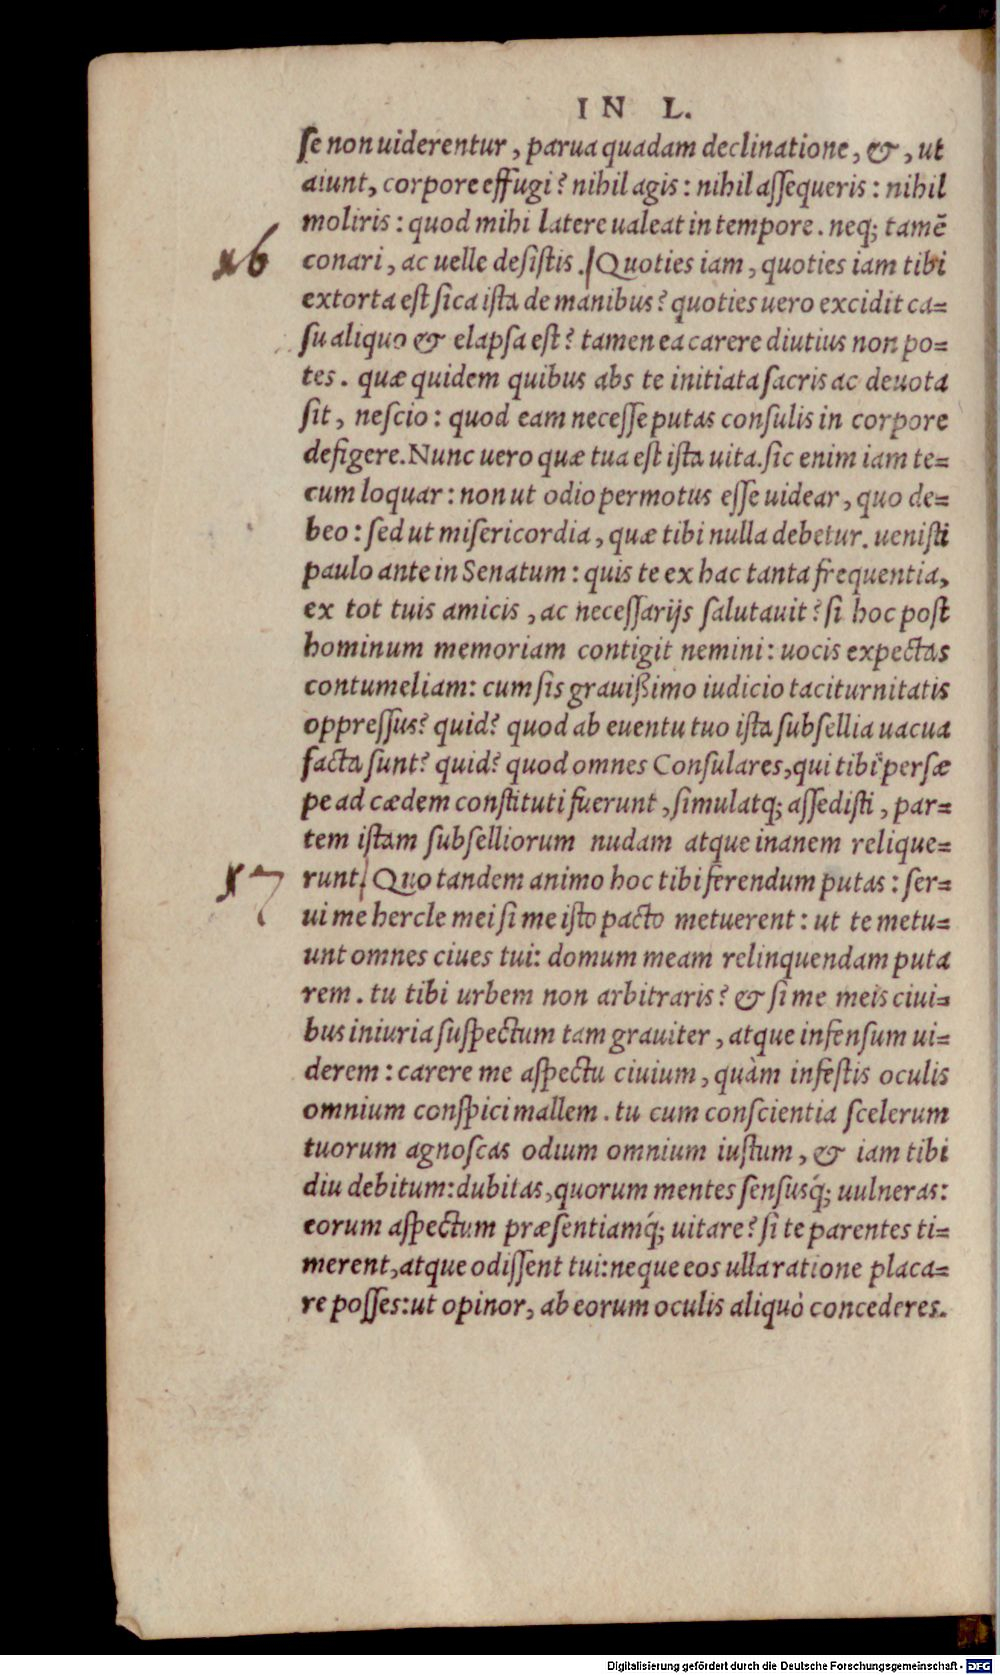 IN L.
se non uiderentur, parua quadam declinatione, &, ut
aiunt, corpore effugi? nihil agis: nihil assequeris: nihil
moliris: quod mihi latere ualeat in tempore. neq; tamē
conari, ac uelle desistis. Quoties iam, quoties iam tibi
extorta est sica ista de manibus? quoties uero excidit ca=
su aliquo & elapsa est? tamen ea carere diutius non po=
tes. quæ quidem quibus abs te initiata sacris ac deuota
sit, nescio: quod eam necesse putas consulis in corpore
defigere. Nunc uero quæ tua est ista uita. sic enim iam te=
cum loquar: non ut odio permotus esse uidear, quo de=
beo: sed ut misericordia, quæ tibi nulla debetur. uenisti
paulo ante in Senatum: quis te ex hac tanta frequentia,
ex tot tuis amicis, ac necessarijs salutauit? si hoc post
hominum memoriam contigit nemini: uocis expectas
contumeliam: cum sis grauißimo iudicio taciturnitatis
oppressus? quid? quod ab euentu tuo ista subsellia uacua
facta sunt? quid? quod omnes Consulares, qui tibi persæ
pe ad cædem constituti fuerunt, simulatq; assedisti, par=
tem istam subselliorum nudam atque inanem relique=
runt Quo tandem animo hoc tibi ferendum putas: ser=
ui me hercle mei si me isto pacto metuerent: ut te metu=
unt omnes ciues tui: domum meam relinquendam puta
rem. tu tibi urbem non arbitraris? & si me meis ciui=
bus iniuria suspectum tam grauiter, atque infensum ui=
derem: carere me aspectu ciuium, quàm infestis oculis
omnium conspici mallem. tu cum conscientia scelerum
tuorum agnoscas odium omnium iustum, & iam tibi
diu debitum: dubitas, quorum mentes sensusq́; uulneras:
eorum aspectum præsentiamq́; uitare? si te parentes ti=
merent, atque odissent tui: neque eos ulla ratione placa=
re posses: ut opinor, ab eorum oculis aliquò concederes.
x6
x7
Digitalisierung gefördert durch die Deutsche Forschungsgemeinschaft - DFG